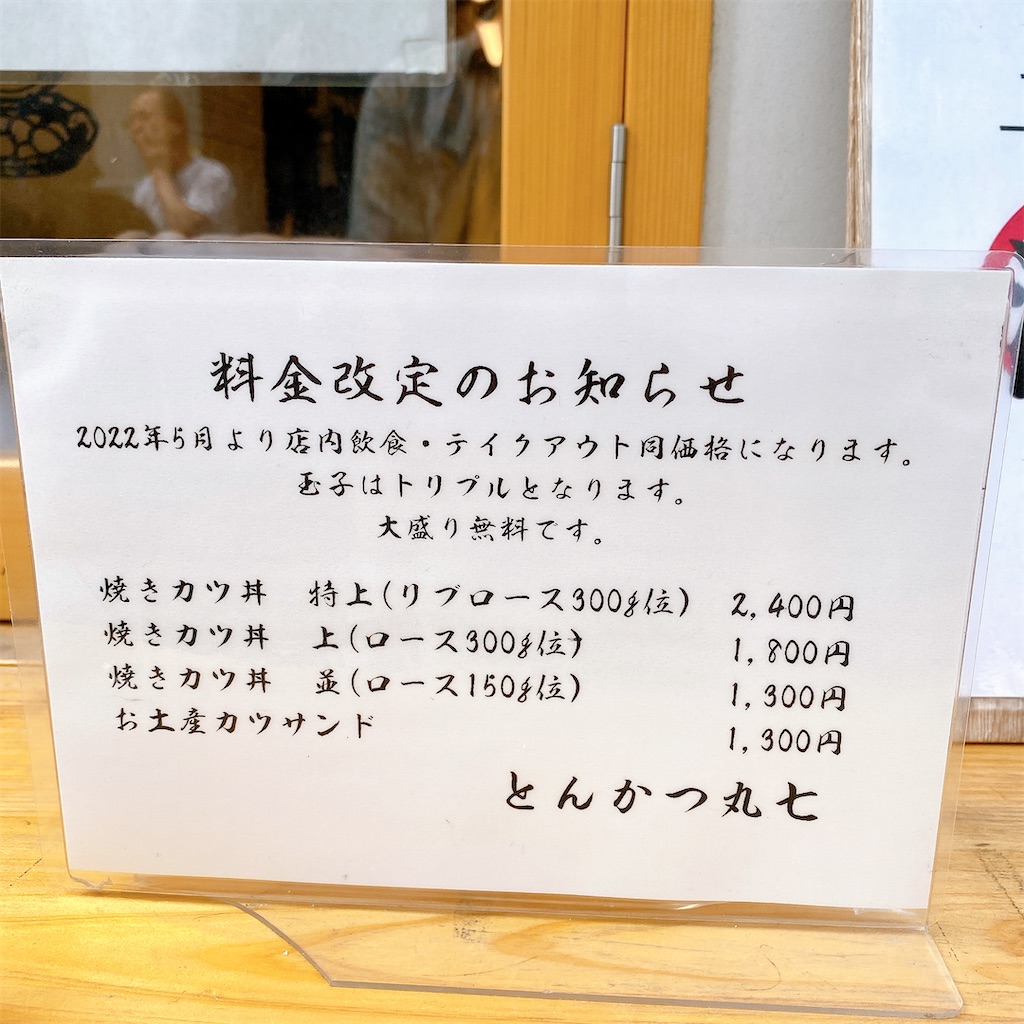 料金改定のお知らせ
2022年5月より店内飲食・テイクアウト同価格になります。
玉子はトリプルとなります。
大盛り無料です。
焼きカツ丼 特上(リブロース300g位) 2,400円
焼きカツ丼 上(ロース300g位) 1,800円
焼きカツ丼 並(ロース150g位) 1,300円
お土産カツサンド 1,300円
とんかつ丸七